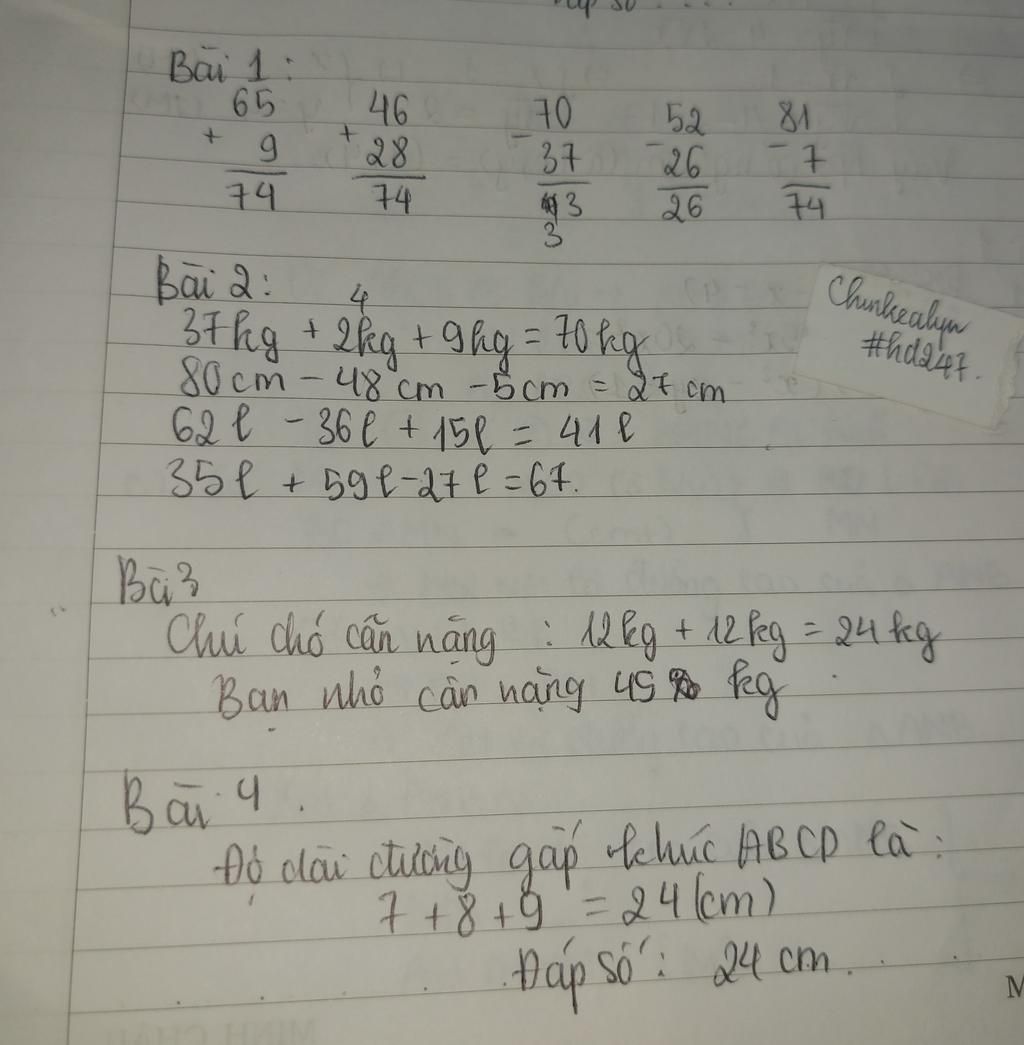 Đáp số : . . . .
Bài 1 :
65 + 9 = 74
46 + 28 = 74
70 - 37 = 33
52 - 26 = 26
81 - 7 = 74
Bài 2 :
4
37kg + 2kg + 9kg = 70kg
80 cm - 48 cm - 5cm = 27 cm
62 l - 36l + 15l = 41 l
35l + 59l - 27 l = 67.
Chunkealyn
#hd247.
Bài 3
Chú chó cân nặng : 12kg + 12kg = 24 kg
Bạn nhỏ cân nặng 45 kg
Bài 4 .
Độ dài đường gấp khúc ABCD là :
7 + 8 + 9 = 24 (cm)
Đáp số : 24 cm .
M